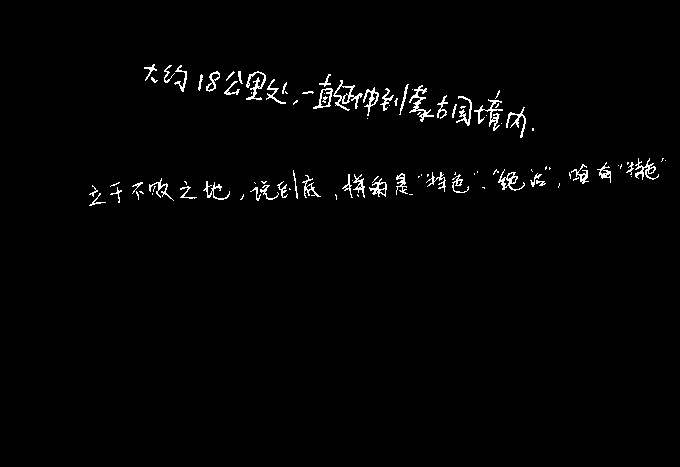 大约18公里处,一直延伸到蒙古国境内.
立于不败之地,说到底,拼的是"特色"、"绝活",唯有"特色"